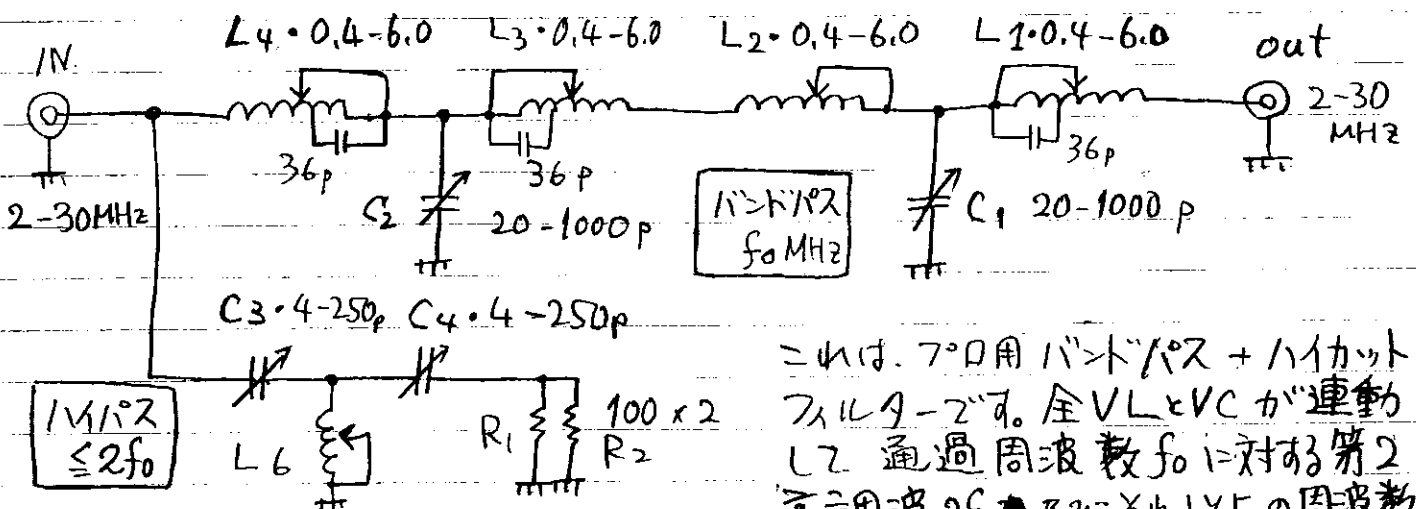 L4・0.4-6.0 L3・0.4-6.0 L2・0.4-6.0 L1・0.4-6.0
IN
out
2-30
MHz
36p 36p 36p
2-30MHz
C2
20-1000p
バンドパス
f0 MHz
C1 20-1000p
C3・4-250p C4・4-250p
ハイパス
≦2f0
L6
R1
R2
100×2
これは、プロ用 バンドパス + ハイカット
フィルターです。全VLとVCが連動
して 通過周波数f0に対する第2